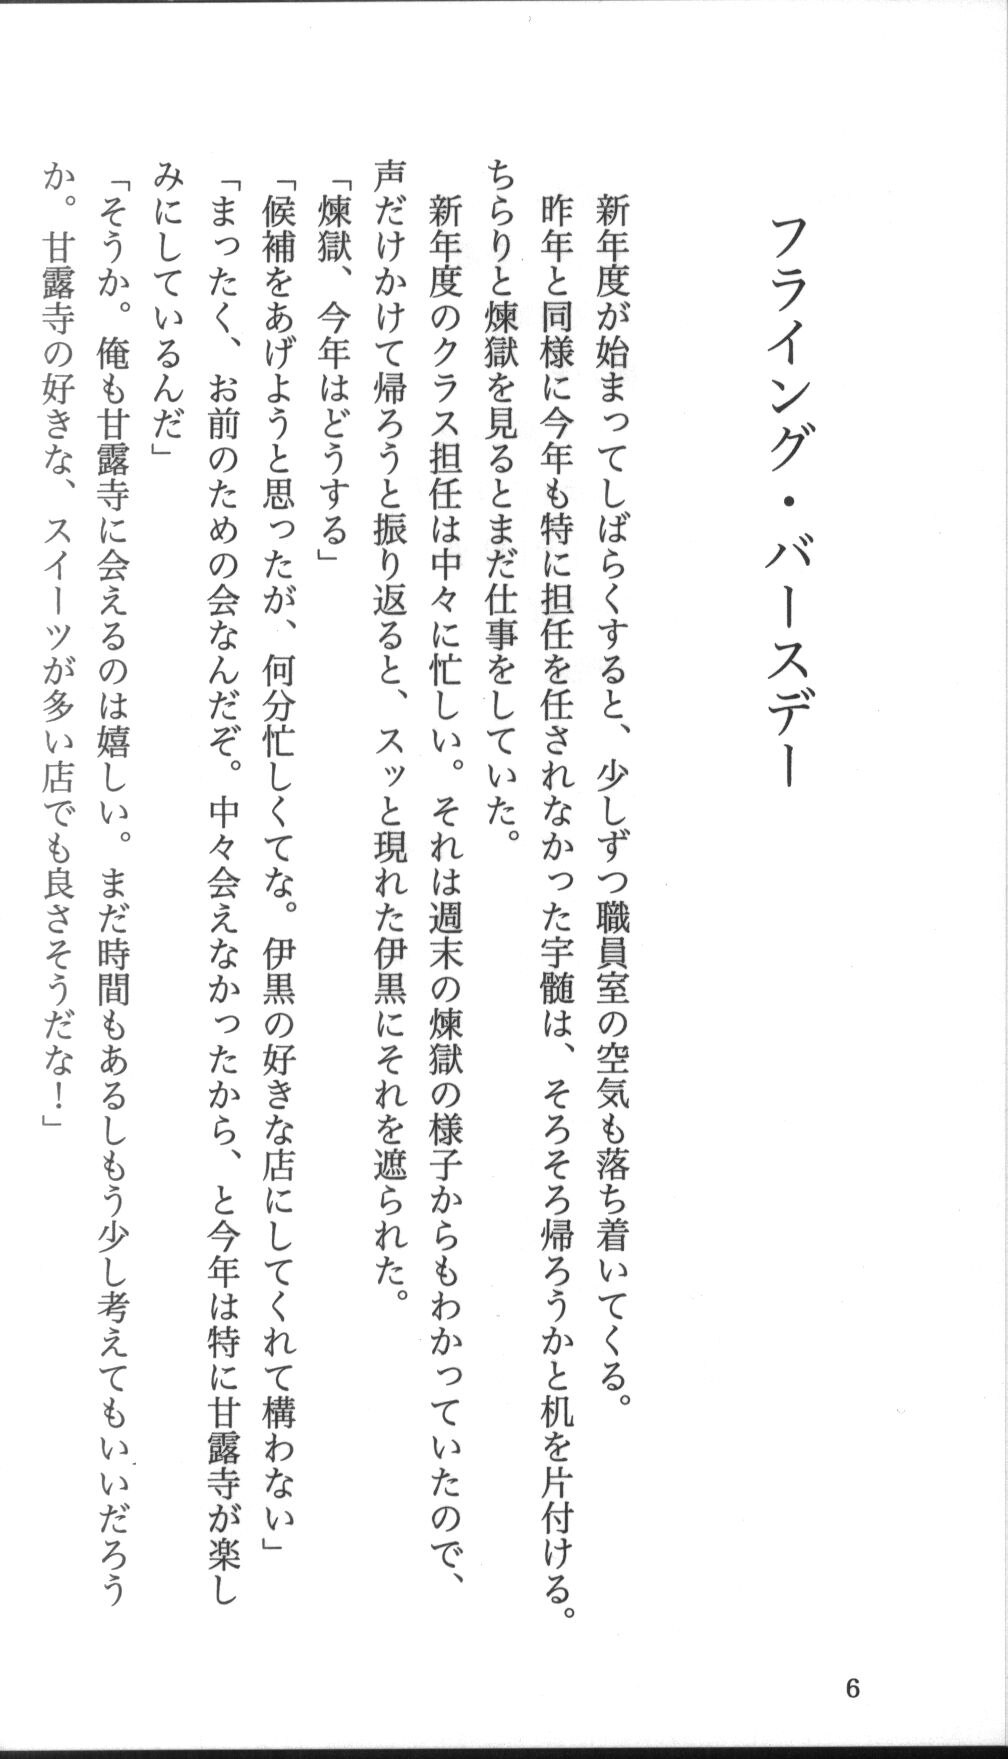 フライング・バースデー
新年度が始まってしばらくすると、少しずつ職員室の空気も落ち着いてくる。
昨年と同様に今年も特に担任を任されなかった宇髄は、そろそろ帰ろうかと机を片付ける。
ちらりと煉獄を見るとまだ仕事をしていた。
新年度のクラス担任は中々に忙しい。それは週末の煉獄の様子からもわかっていたので、
声だけかけて帰ろうと振り返ると、スッと現れた伊黒にそれを遮られた。
「煉獄、今年はどうする」
「候補をあげようと思ったが、何分忙しくてな。伊黒の好きな店にしてくれて構わない」
「まったく、お前のための会なんだぞ。中々会えなかったから、と今年は特に甘露寺が楽し
みにしているんだ」
「そうか。俺も甘露寺に会えるのは嬉しい。まだ時間もあるしもう少し考えてもいいだろう
か。甘露寺の好きな、スイーツが多い店でも良さそうだな！」
6